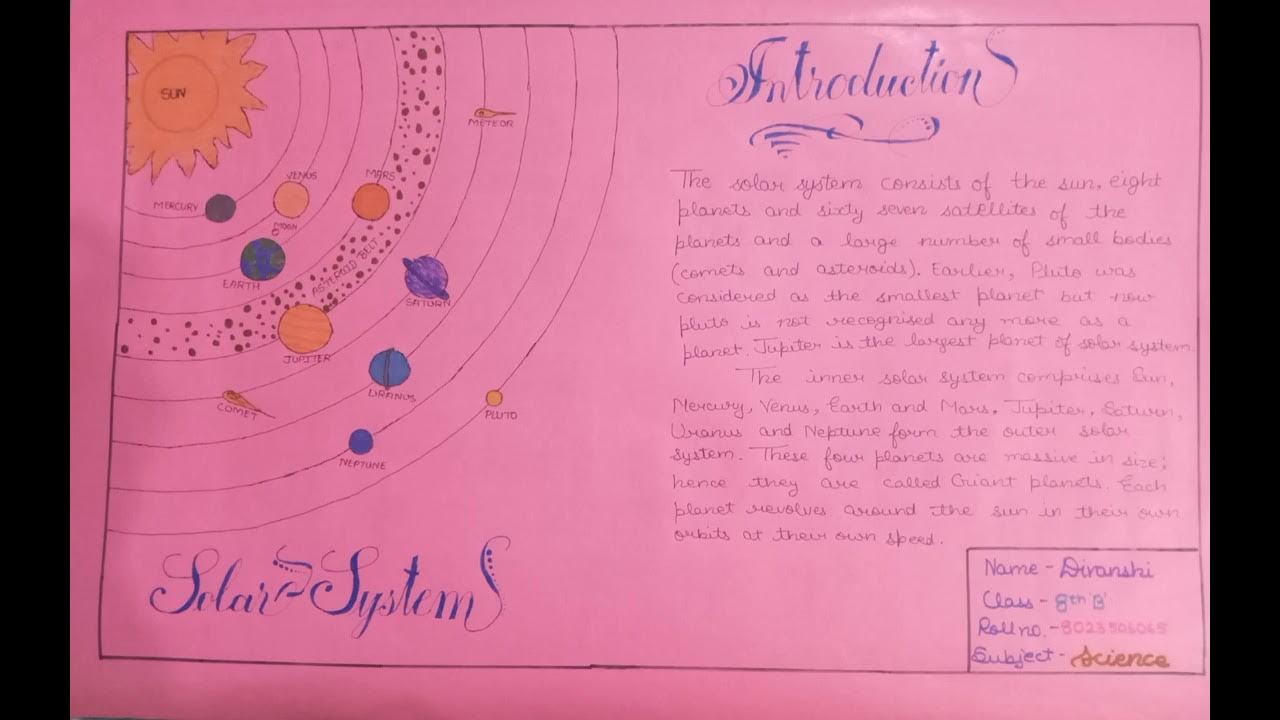 SUN
METEOR
VENUS
MARS
MERCURY
MOON
EARTH
ASTEROID BELT
SATURN
JUPITER
URANUS
COMET
PLUTO
NEPTUNE
Solar System
Introduction
The solar system consists of the sun, eight
planets and sixty seven satellites of the
planets and a large number of small bodies
(comets and asteroids). Earlier, Pluto was
considered as the smallest planet but now
pluto is not recognised any more as a
planet. Jupiter is the largest planet of solar system.
The inner solar system comprises Sun,
Mercury, Venus, Earth and Mars, Jupiter, Saturn,
Uranus and Neptune form the outer solar
system. These four planets are massive in size;
hence they are called Giant planets. Each
planet revolves around the sun in their own
orbits at their own speed.
Name - Divanshi
Class - 8th 'B'
Roll no. - 8023506065
Subject - Science